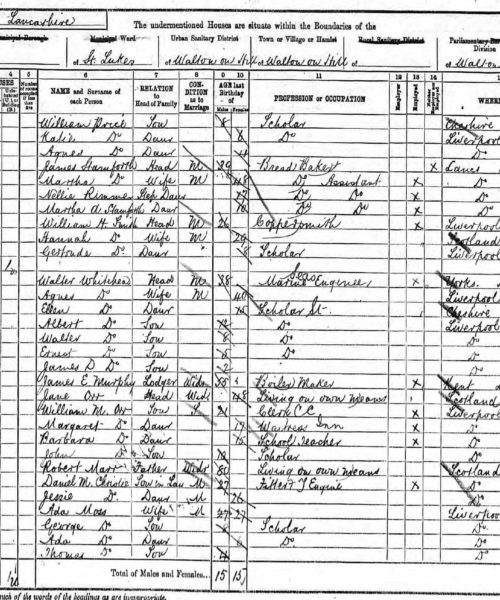 Lancashire
The undermentioned Houses are situate within the Boundaries of the
Municipal Borough Municipal Ward Urban Sanitary District Town or Village or Hamlet Rural Sanitary District Parliamentary
of St. Lukes of Walton on Hill of Walton on Hill of of Walton
4 5 6 7 8 9 10 11 12 13 14
NAME and Surname of each Person RELATION to Head of Family CONDITION as to Marriage AGE last Birthday of PROFESSION or OCCUPATION Employer Employed WHERE
Males Females
William Price Son 8 Scholar Cheshire
Katie Do Daur Do Liverpool
Agnes Do Daur Do
James Stamforth Head M 39 Bread Baker X Lancs
Martha Do Wife M 48 Do Assistant X Do
Nellie Rimmer Step Daur 17 Do Do X Do
Martha A Stamforth Daur 16 Do Do X Do
William H. Smith Head M 26 Coppersmith X Liverpool
Hannah Do Wife M 29 Scotland
Gertrude Do Daur Scholar Liverpool
Walter Whitehead Head M 38 Marine Engineer X Yorks.
Agnes Do Wife M 40 Liverpool
Ellen Do Daur 15 Scholar Cheshire
Albert Do Son Do Liverpool
Walter Do Son 8 Do Do
Ernest Do Son Do Do
James D Do Son 2 Do
James E. Murphy Lodger Widr 58 Boiler Maker X Kent
Jane Orr Head Wid 48 Living on own means Scotland
William M. Orr Son S 21 Clerk C.C. X Liverpool
Margaret Do Daur 19 Waitress Inn X Do
Barbara Do Daur 15 School Teacher X Do
John Do Son Scholar Do
Robert Marr Father Widr 80 Living on own means Scotland
Daniel M. Christie Son in Law M 27 Fitter Engine X Do
Jessie Do Daur M 26 Do
Ada Moss Wife M 27 Liverpool
George Do Son 8 Scholar Do
Ada Do Daur 6 Do Do
Thomas Do Son 4 Do
Total of Males and Females... 15 15
of the words of the headings as are inappropriate.